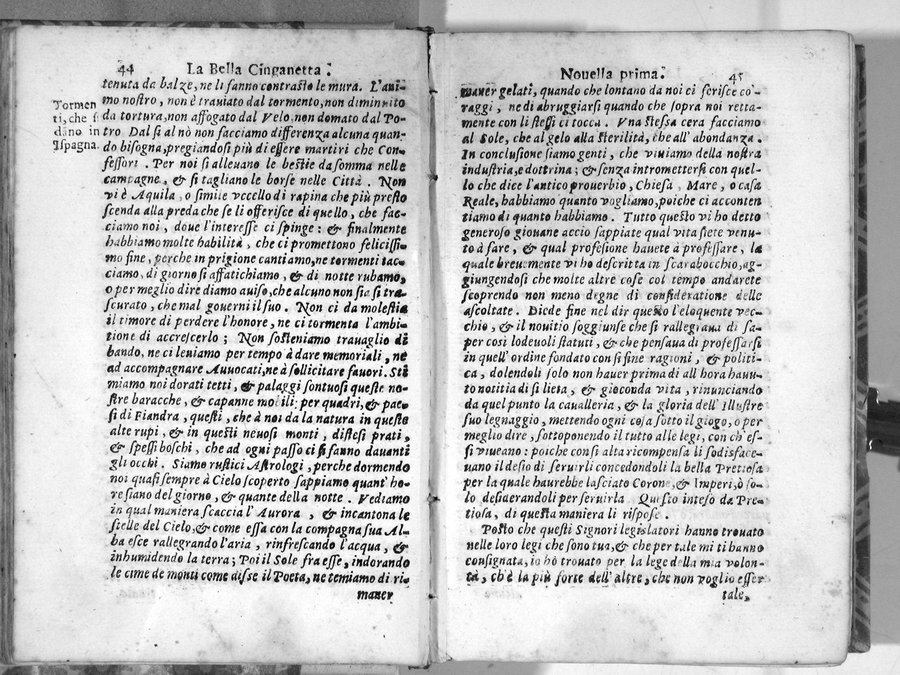 44 La Bella Cinganetta.
tenuta da balze, ne li fanno contrasto le mura. L'ani-
mo nostro, non è traviato dal tormento, non diminuito
da tortura, non affogato dal Velo, non domato dal Po-
tro Dal sì al nò non facciamo differenza alcuna quan-
do bisogna, pregiandosi più di essere martiri che Con-
fessori. Per noi si alleuano le bestie da somma nelle
campagne, & si tagliano le borse nelle Città. Non
vi è Aquila, o simile vccello di rapina che più presto
scenda alla preda che se li offerisce di quello, che fac-
ciamo noi, doue l'interesse ci spinge: & finalmente
habbiamo molte habilità, che ci promettono felicissi-
mo fine, perche in prigione cantiamo, ne tormenti tac-
ciamo, di giorno si affatichiamo, & di notte rubamo,
o per meglio dire diamo auiso, che alcuno non sia sì tra-
scurato, che mal governi il suo. Non ci da molestia
il timore di perdere l'honore, ne ci tormenta l'ambi-
tione di accrescerlo; Non sosteniamo trauaglio di
bando, ne ci leuiamo per tempo à dare memoriali, ne
ad accompagnare Auuocati, ne à sollicitare fauori. Sti
miamo noi dorati tetti, & palaggi sontuosi queste no-
stre baracche, & capanne mobili: per quadri, & pae-
si di Fiandra, questi, che à noi da la natura in queste
alte rupi, & in questi neuosi monti, distesi prati,
& spessi boschi, che ad ogni passo ci si fanno dauanti
gli occhi. Siamo rustici Astrologi, perche dormendo
noi quasi sempre à Cielo scoperto sappiamo quant' ho-
re siano del giorno, & quante della notte. Vediamo
in qual maniera scaccia l'Aurora, & incantona le
stelle del Cielo, & come essa con la compagna sua Al-
ba esce rallegrando l'aria, rinfrescando l'acqua, &
inhumidendo la terra; Poi il Sole fra esse, indorando
le cime de monti come disse il Poeta, ne temiamo di ri-
maner
Tormen
ti, che s
dano in
Ispagna.
Nouella prima. 45
maner gelati, quando che lontano da noi ci ferisce co'
raggi, ne di abruggiarsi quando che sopra noi retta-
mente con li stessi ci tocca. Vna stessa cera facciamo
al Sole, che al gelo alla sterilità, che all' abondanza.
In conclusione siamo genti, che viuiamo della nostra
industria, e dottrina; & senza intrometterfi con quel-
lo che dice l'antico prouerbio, Chiesa, Mare, o casa
Reale, habbiamo quanto vogliamo, poiche ci acconten
tiamo di quanto habbiamo. Tutto questo vi ho detto
generoso giouane accio sappiate qual vita siete venu-
to à fare, & qual profesione hauete à professare, la
quale breuemente vi ho descritta in scarabocchio, ag-
giungendosi che molte altre cose col tempo andarete
scoprendo non meno degne di consideratione delle
ascoltate. Diede fine nel dir questo l'eloquente vec-
chio, & il nouitio soggiunse che si rallegraua di sa-
per così lodeuoli statuti, & che pensaua di professarsi
in quell'ordine fondato con sì fine ragioni, & politi-
ca, dolendoli solo non hauer prima di all hora hauu-
to notitia di sì lieta, & gioconda vita, rinunciando
da quel punto la cauallerìa, & la gloria dell' Illustre
suo legnaggio, mettendo ogni cosa sotto il giogo, o per
meglio dire, sottoponendo il tutto alle legi, con ch'es-
si viueano: poiche con sì alta ricompensa li sodisface-
uano il desio di seruirli concedendoli la bella Pretiosa
per la quale haurebbe lasciato Corone, & Imperi, ò so-
lo desiderandoli per seruirla. Questo inteso da Pre-
tiosa, di questa maniera li rispose.
Posto che questi Signori legislatori hanno trouato
nelle loro legi che sono tua, & che per tale mi ti hanno
consignata, io hò trouato per la lege della mia volon-
tà, ch'è la più forte dell' altre, che non voglio esser
tale,